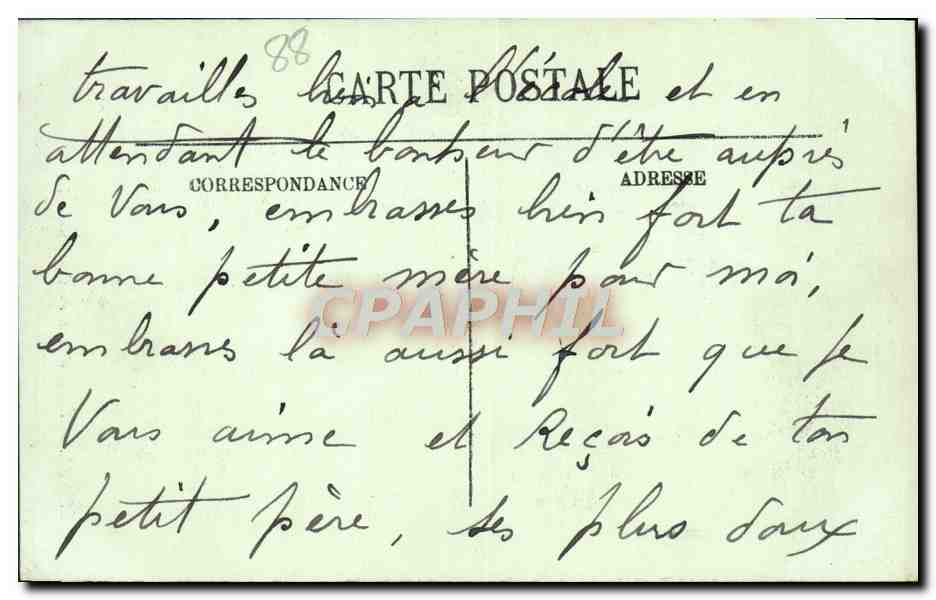 88
CARTE POSTALE
travailles bien a l'école et en
attendant le bonheur d'être auprès
CORRESPONDANCE
ADRESSE
de Vous, embrasses bien fort ta
bonne petite mère pour moi,
CPAPHIL
embrasses là aussi fort que je
Vous aime et Reçois de ton
petit père, ses plus doux